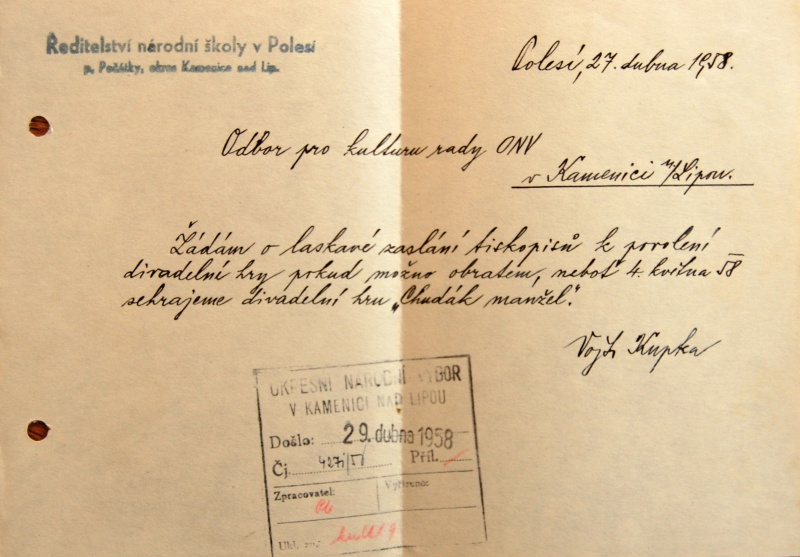 Ředitelství národní školy v Polesí
p. Počátky, okres Kamenice nad Lip.
Polesí, 27. dubna 1958.
Odbor pro kulturu rady ONV
v Kamenici n/Lipou.
Žádám o laskavé zaslání tiskopisů k povolení
divadelní hry pokud možno obratem, neboť 4. května 58
sehrajeme divadelní hru „Chudák manžel".
Vojt. Kupka
OKRESNÍ NÁRODNÍ VÝBOR
V KAMENICI NAD LIPOU
Došlo: 29. dubna 1958
Čj. Příl.
Zpracovatel: Vyřízeno:
Ukl. zn.: